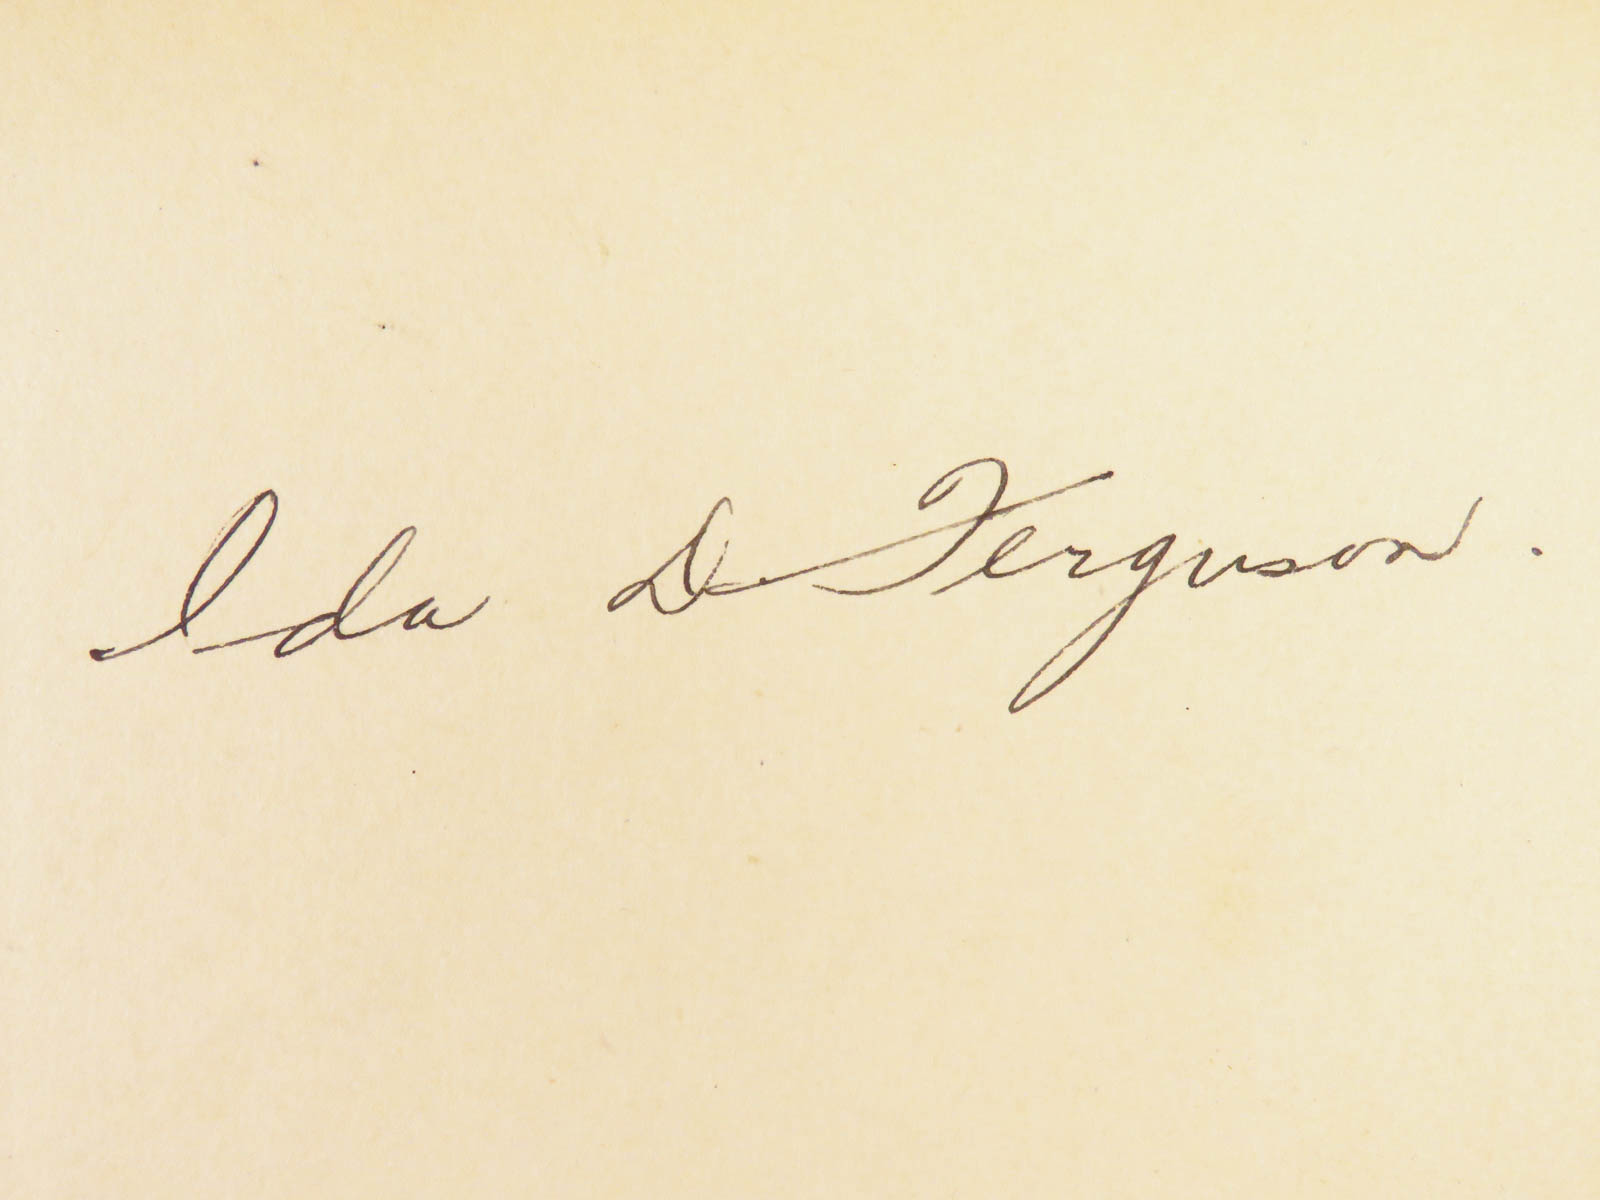 Ida D Ferguson.